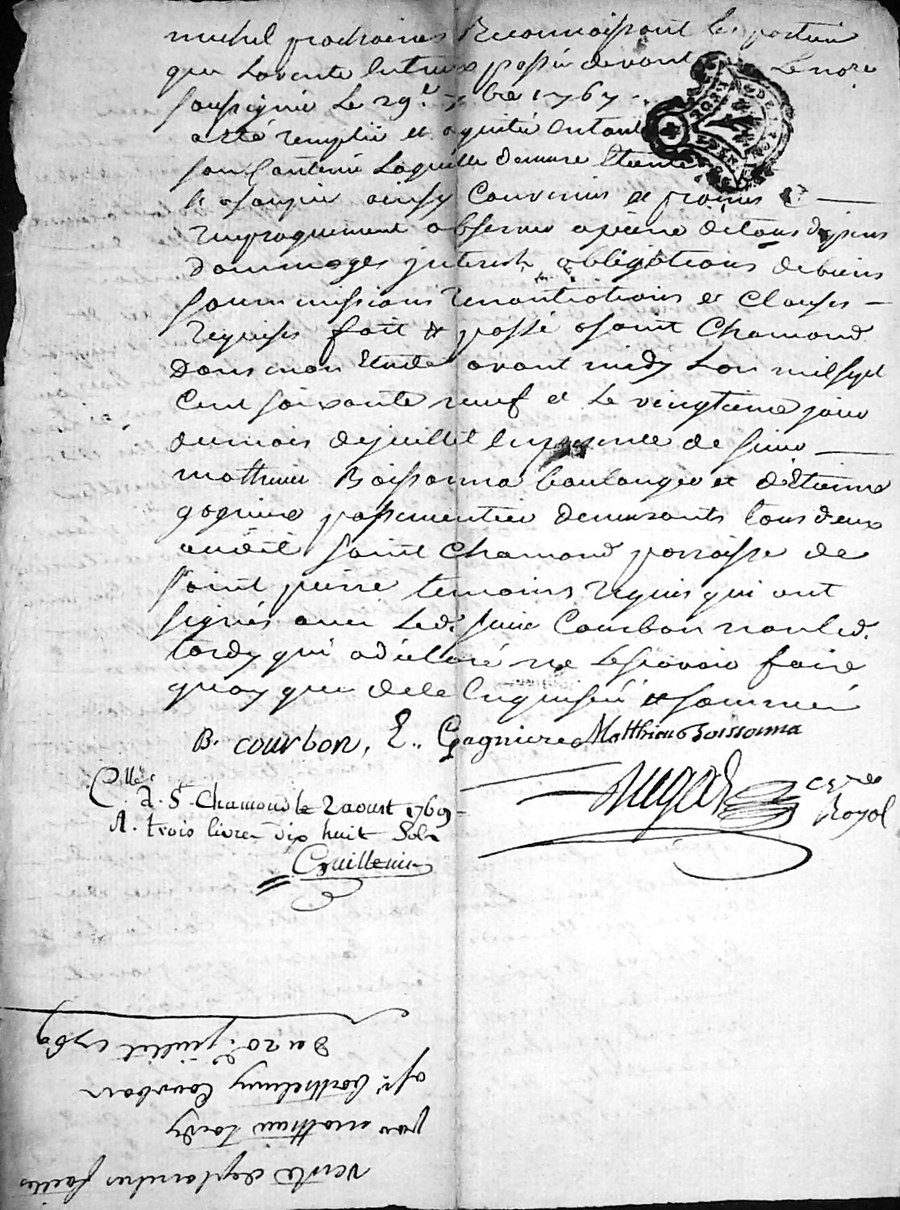 michel prochaines Reconnoissant les parties
que la vente entreux passée devant Le nore
soussigné Le 29e 7bre 1767
a été remplie et aquitée entout
son Contenu Laquelle demeure Eteinte
ainsy Convenu et promis
reciproquement observer apeine detous depens
dommages interests obligations debiens
soummissions renontiations et Clauses
requises fait et passé a saint Chamond
dans mon Etude avant midy Lan mil sept
Cent soixante neuf et Le vingtieme jour
dumois dejuillet en presence de sieur
mathieu Boissonna boulanger et d'Etienne
gagniere passementier demeurants tous deux
audit saint Chamond parroisse de
saint pierre temoins requis qui ont
signés avec Led. sieur Courbon non led.
tardy qui a déclaré ne Le sçavoir faire
quoy que de ce Enquis et sommé
B. courbon, E. Gagniere Matthieu Boissonna
Cllé
A St Chamond le 2 aoust 1769
R. trois livres dix huit Sols
Guillemin
Royal
Du 20e juillet 1769
sr. barthelemy Courbon
par mathieu tardy
vente deplanches faite